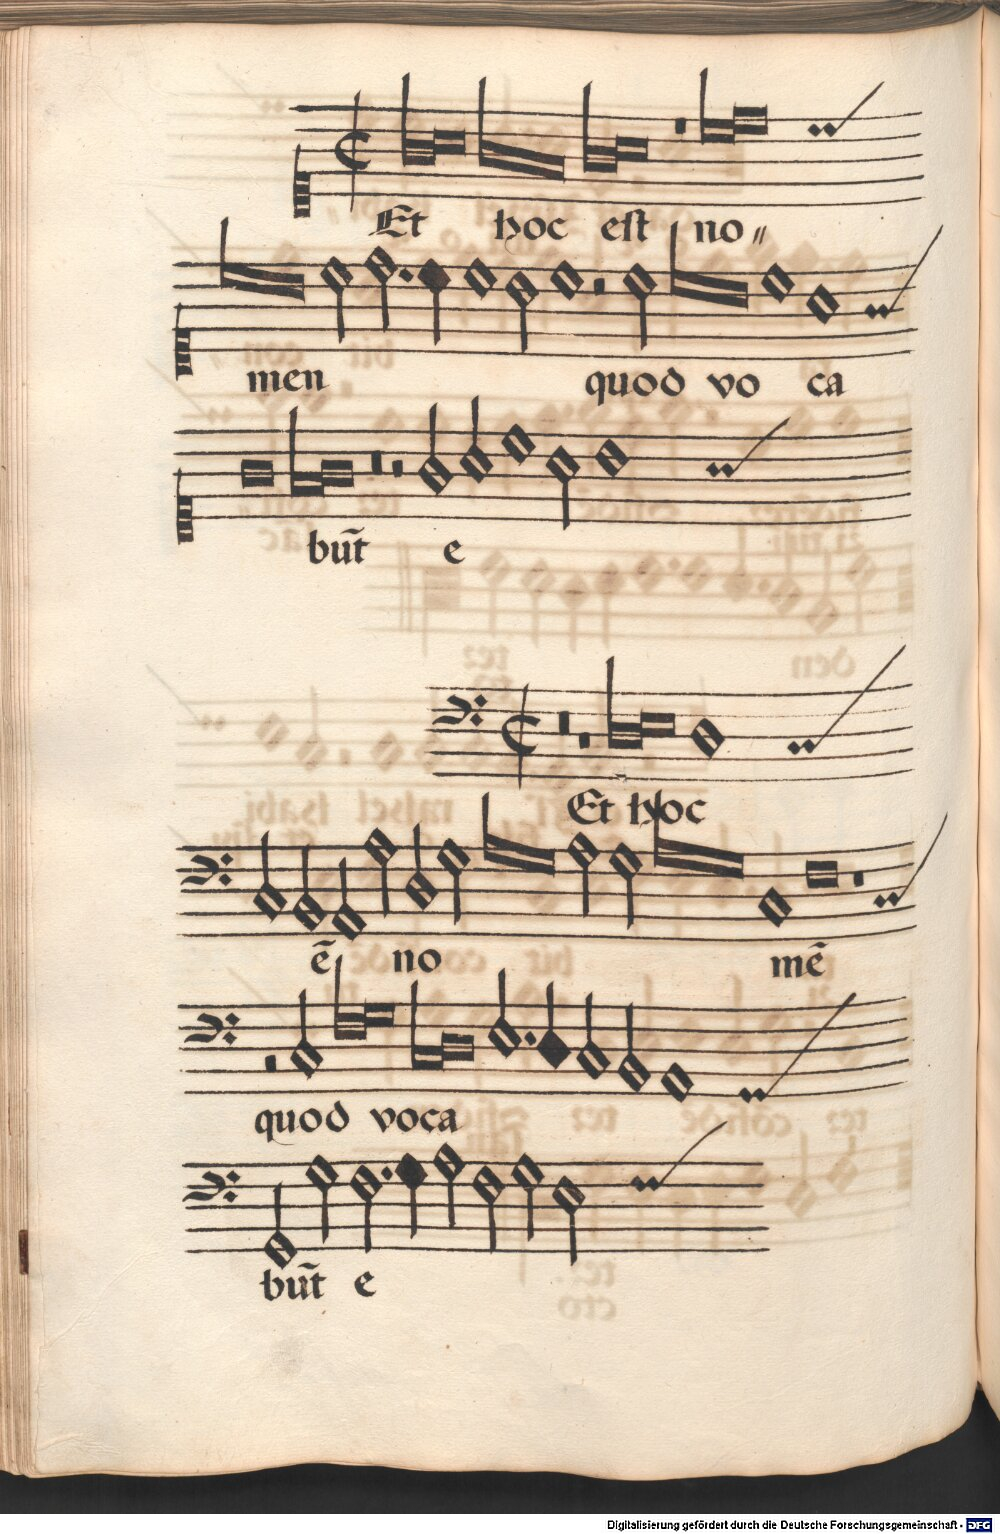 Et hoc est no〃
men quod vo ca
bu᷑t e
Et hoc
ē no mē
quod voca
bu᷑t e
Digitalisierung gefördert durch die Deutsche Forschungsgemeinschaft - DFG